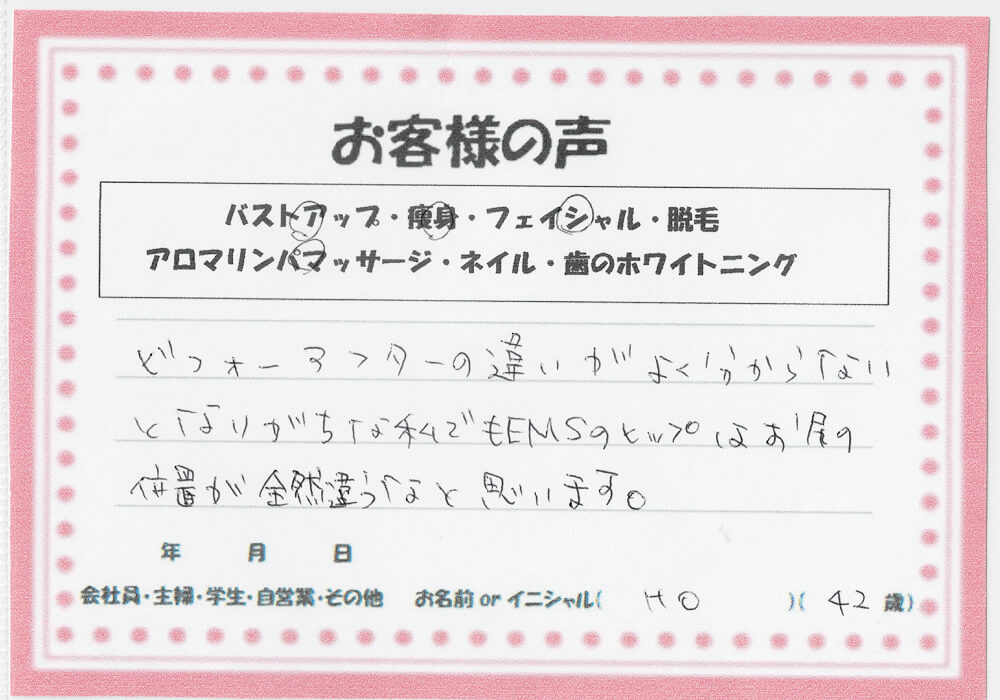 お客様の声
バストアップ・痩身・フェイシャル・脱毛
アロマリンパマッサージ・ネイル・歯のホワイトニング
ビフォーアフターの違いがよく分からない
となりがちな私でもEMSのヒップはお尻の
位置が全然違うなと思います。
年 月 日
会社員・主婦・学生・自営業・その他 お名前orイニシャル( HO )( 42 歳)